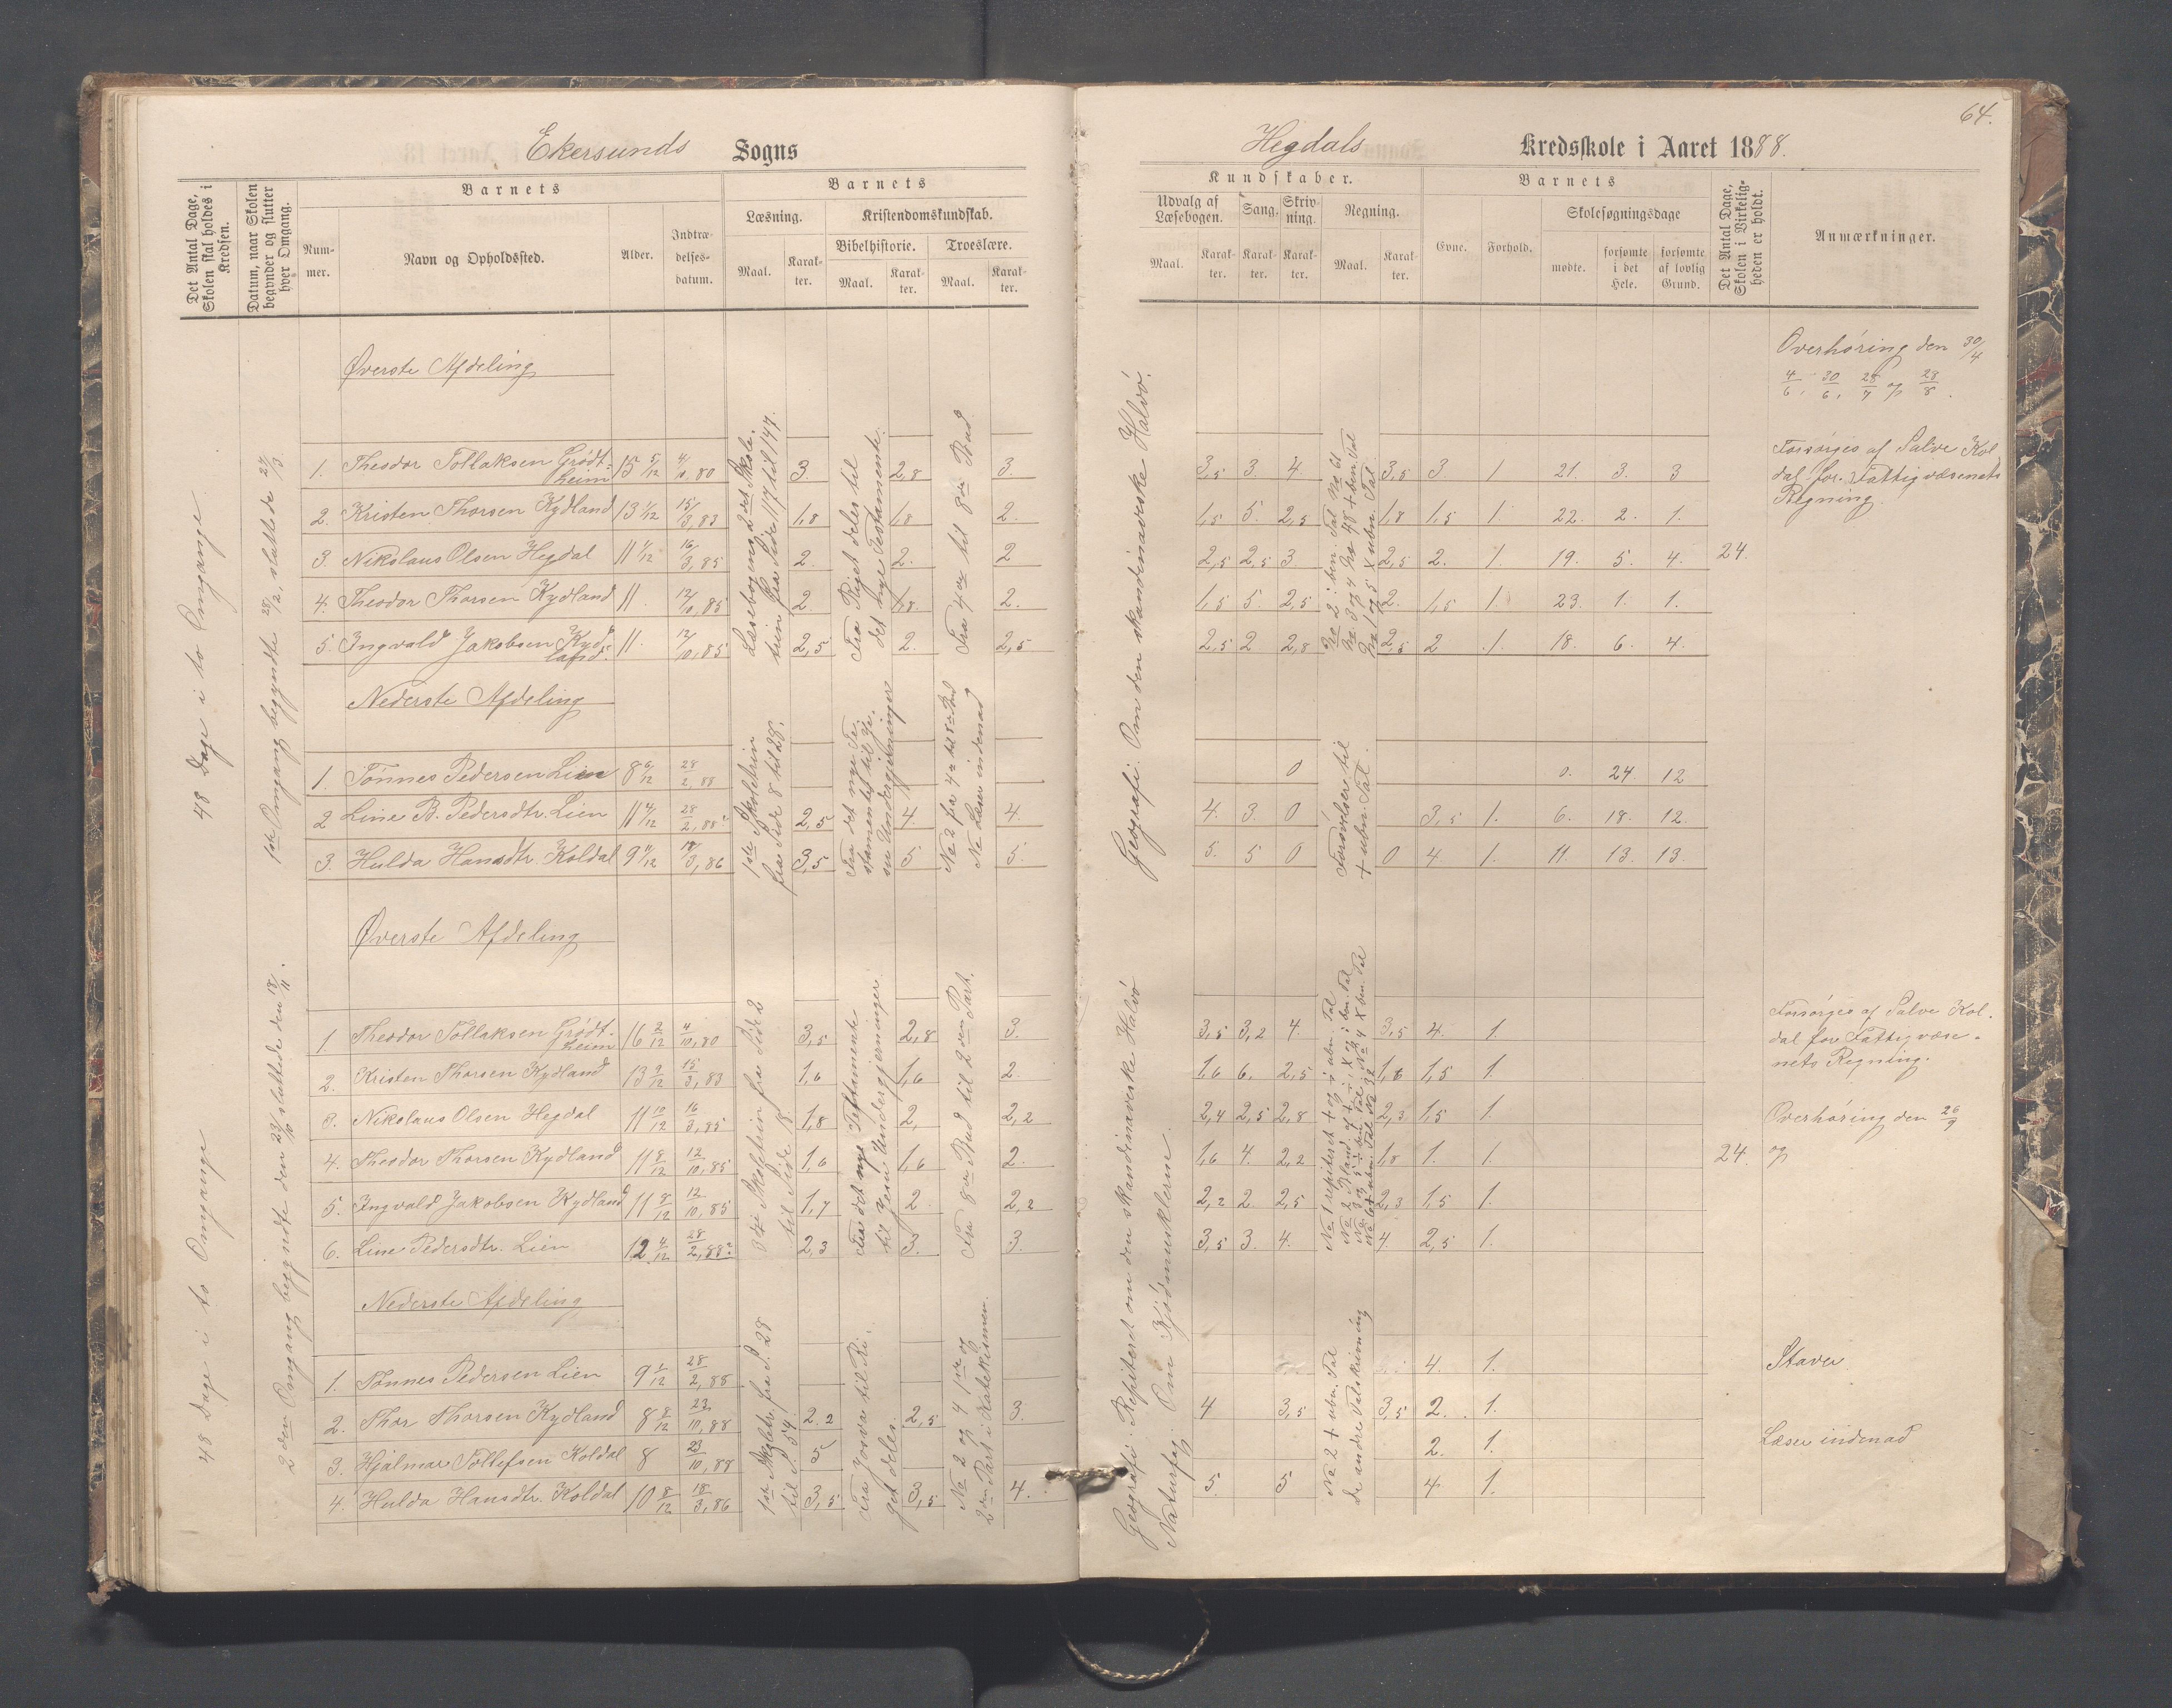 64.
Ekersunds Sogns
Hegdals Kredsskole i Aaret 1888.
Det Antal Dage, Skolen skal holdes i Kredsen.
Datum, naar Skolen begynder og slutter hver Omgang.
Barnets
Nummer.
Navn og Opholdssted.
Alder.
Indtrædelsesdatum.
Barnets
Læsning.
Maal.
Karakter.
Kristendomskundskab.
Bibelhistorie.
Maal.
Karakter.
Troeslære.
Maal.
Karakter.
Kundskaber.
Udvalg af Læsebogen.
Maal.
Karakter.
Sang.
Karakter.
Skrivning.
Karakter.
Regning.
Maal.
Karakter.
Barnets
Evne.
Forhold.
Skolesøgningsdage
mødte.
forsømte i det Hele.
forsømte af lovlig Grund.
Det Antal Dage, Skolen i Virkeligheden er holdt.
Anmærkninger.
48 Dage i to Omgange
1ste Omgang begyndte 28/2, sluttede 27/3
Øverste Afdeling
Overhøring den 30/4
4/6, 30/6, 28/7 og 23/8.
1. Theodor Tollaksen Grødtheim 15 5/12 4/10, 80 3. 2,8 3. 3,5 3. 4 3,5 3. 1 21. 3. 3
Forsørges af Salve Koldal for Fattigvæsenets Regning.
2. Kristen Thorsen Kydland 13 1/12 15/3, 83 1,8 1,8 2. 1,5 5. 2,5 1,8 1,5 1. 22. 2. 1.
3. Nikolaus Olsen Hegdal 11 4/12 16/3, 85 2. 2. 2 2,5 2,5 3 2,5 2. 1. 19. 5. 4. 24.
4. Theodor Thorsen Kydland 11. 12/10, 85 2. 1,8. 2. 1,5 5. 2,5 2. 1,5 1. 23. 1. 1.
5. Ingvald Jakobsen Kydland 11. 12/10, 85 2,5 2. 2,5 2,5 2 2,8 2,5 2 1. 18. 6. 4.
Læsebogens 2det Skoletrin fra Side 117 til 147.
Fra Riget deles til det nye Testamente.
Fra 4de til 8de Bud
Geografi: Om den skandinaviske Halvø.
Nederste Afdeling
1. Tønnes Pedersen Lien 8 6/12 28/2, 88 0 0. 24 12
2 Line B. Pedersdtr. Lien 11 4/12 28/2, 88 2,5 4. 4. 4. 3. 0 3,5 1. 6. 18. 12.
3. Hulda Hansdtr. Koldal 9 11/12 18/3, 86 3,5 5. 5. 5. 5 0 0 4 1. 11. 13. 13.
1ste Skoletrin fra Side 8 til 28.
Forøvelser til + ubn. Tal.
48 Dage i to Omgange
2den Omgang begyndte den 23/10 sluttede den 18/11.
Øverste Afdeling
1. Theodor Tollaksen Grødtheim 16 2/12 4/10, 80 3,5 2,8 3. 3,5 3,2 4. 3,5 4. 1.
Forsørges af Salve Koldal for Fattigvæsenets Regning.
2. Kristen Thorsen Kydland 13 9/12 15/3, 83 1,6 1,6 2. 1,6 6. 2,5 1,6 1,5 1.
3. Nikolaus Olsen Hegdal 11 10/12 16/3, 85 1,8 2, 2,2 2,4 2,5 2,8 2,3 1,5 1.
Overhøring den 26/9
4. Theodor Thorsen Kydland 11 8/12 12/10, 85 1,6 1,6 2. 1,6 4. 2,2 1,8 1. 1. 24. og
5. Ingvald Jakobsen Kydland 11 8/12 12/10, 85 1,7 2. 2,2 2,2 2. 2,5 2,3 1,5 1.
6. Line Pedersdtr. Lien 12 4/12 28/2, 88 2,3 3. 3. 3,5 3. 4. 4 2,5 1.
3die Skoletrin fra Side 2 til Side 18.
Fra det nye Testamente til Jesu Undergjerninger
Fra 8de Bud til 2den Part.
Geografi: Repiteret om den skandinaviske Halvø
Naturfag: Om Kjødmusklerne.
Nederste Afdeling
1. Tønnes Pedersen Lien 9 1/12 28/2, 88 4. 1. Staver
2. Thor Thorsen Kydland 8 8/12 23/10, 88 2.2 2,5 3. 4 3,5 3,5 2. 1.
3. Hjalmar Tollefsen Koldal 8 23/10, 88 5 2. 1. Læser indenad
4. Hulda Hansdtr. Koldal 10 8/12 18/3, 86 3,5 3,5 4. 5. 5 4 1.
1ste Skoletr. fra S. 28 til S. 54.
Fra Josva til Riget deles.
No 2 og 4 1ste og 2den Part i Katekismen.
No 2 + ubn. Tal
De andre Talskrivning